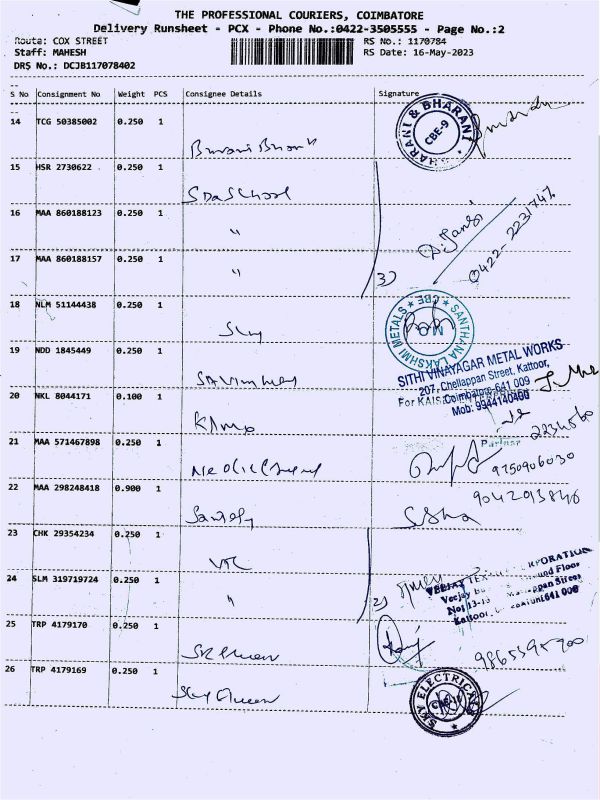 THE PROFESSIONAL COURIERS, COIMBATORE
Delivery Runsheet - PCX - Phone No.:0422-3505555 - Page No.:2
Route: COX STREET RS No.: 1170784
Staff: MAHESH RS Date: 16-May-2023
DRS No.: DCJB117078402
S No Consignment No Weight PCS Consignee Details Signature
14 TCG 50385002 0.250 1
BHARANI & BHARANI CBE-9
15 HSR 2730622 0.250 1
SDA School
16 MAA 860188123 0.250 1 "
0422-2231747
17 MAA 860188157 0.250 1 "
3)
18 NLM 51144438 0.250 1
SANTHANA LAKSHMI METALS CBE
19 NDD 1845449 0.250 1
SITHI VINAYAGAR METAL WORKS
207, Chellappan Street, Kattoor,
Coimbatore-641 009
Mob: 9944140400
20 NKL 8044171 0.100 1
For
Partner
21 MAA 571467898 0.250 1
2234560
9750906030
22 MAA 298248418 0.900 1
9042093846
23 CHK 29354234 0.250 1
VTC
24 SLM 319719724 0.250 1 "
2)
VEEJAY TEX RPORATION
Veejay und Floor
No: 13-1 ppan Street
Kattoor, 641 009
25 TRP 4179170 0.250 1
9865595900
26 TRP 4179169 0.250 1
Sky
SKY ELECTRICALS